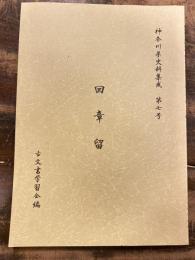 神奈川県史料集成 第七号
回章留
古文書学習会編